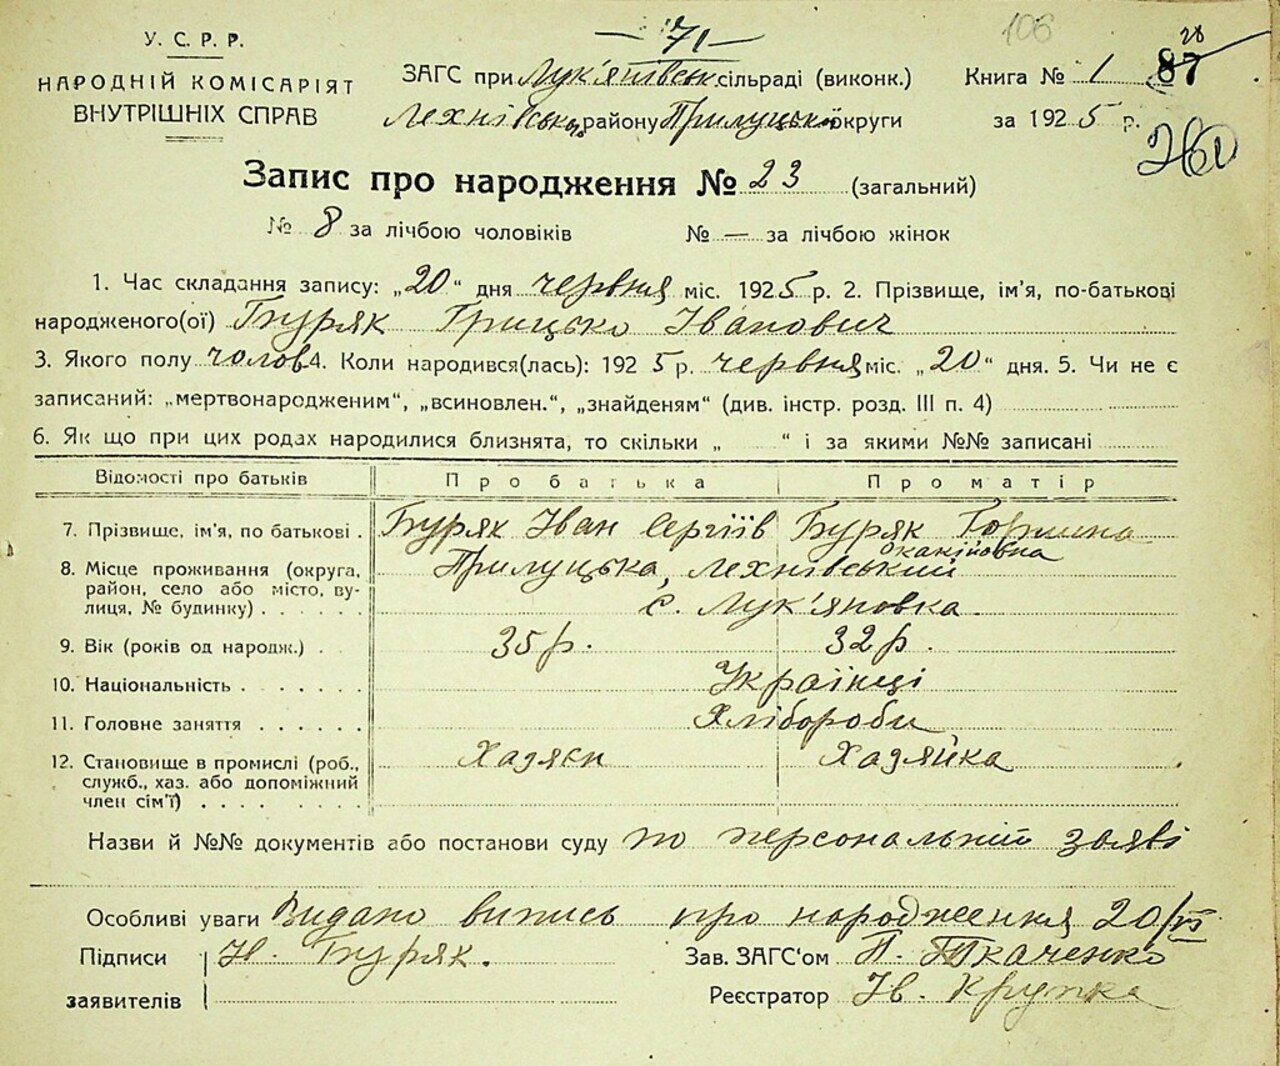 106
— 71 —
28
У. С. Р. Р.
НАРОДНІЙ КОМІСАРІЯТ
ВНУТРІШНІХ СПРАВ
ЗАГС при Лук'янівськ сільраді (виконк.)
Лехнівськ району Прилуцької округи
Книга № 1 87
за 1925 р.
Запис про народження № 23 (загальний)
№ 8 за лічбою чоловіків № — за лічбою жінок
1. Час складання запису: „20" дня червня міс. 1925 р. 2. Прізвище, ім'я, по-батькові
народженого(ої) Буряк Грицько Іванович
3. Якого полу чолов 4. Коли народився(лась): 1925 р. червня міс. „20" дня. 5. Чи не є
записаний: „мертвонародженим", „всиновлен.", „знайденям" (див. інстр. розд. III п. 4)
6. Як що при цих родах народилися близнята, то скільки „ " і за якими №№ записані
Відомості про батьків Про батька Про матір
7. Прізвище, ім'я, по батькові . Буряк Іван Сергіїв Буряк
8. Місце проживання (округа, Прилуцька, Лехнівський
район, село або місто, ву-
лиця, № будинку) . . . . . с. Лук'яновка
9. Вік (років од народж.) . 35 р. 32 р.
10. Національність . . . . . . Українці
11. Головне заняття . . . . . Хлібороби
12. Становище в промислі (роб., Хазяєн Хазяйка
служб., хаз. або допоміжний
член сім'ї) . . . . . . . .
Назви й №№ документів або постанови суду по персональній заяві
Особливі уваги Видано випись про народження 20/VI
Підписи Буряк. Зав. ЗАГС'ом П. Ткаченко
заявителів Реєстратор Ів. Крупка